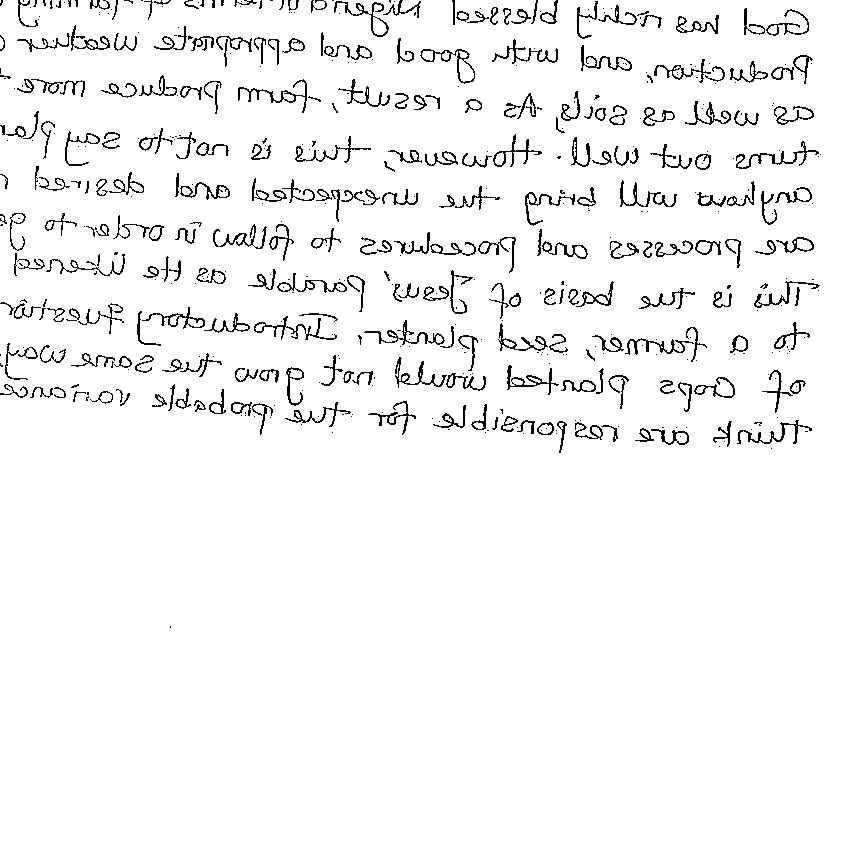 God has richly blessed Nigeria in terms of farming
Production, and with good and appropriate weather
as well as soils, As a result, farm produce more
turns out well. However, this is not to say plan
anyhow will bring the unexpected and desired
are processes and procedures to follow in order to ge
This is the basis of Jesus' parable as He likened
to a farmer, seed planter. Introductory question
of crops planted would not grow the same way
think are responsible for the probable variance